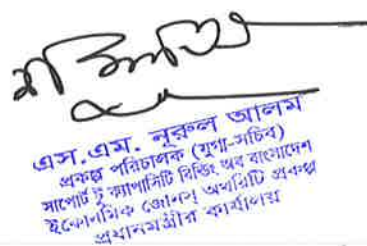 এস.এম. নূরুল আলম
প্রকল্প পরিচালক (যুগ্ম-সচিব)
সাপোর্ট টু ক্যাপাসিটি বিল্ডিং অব বাংলাদেশ
ইকোনমিক জোনস্ অথরিটি প্রকল্প
প্রধানমন্ত্রীর কার্যালয়